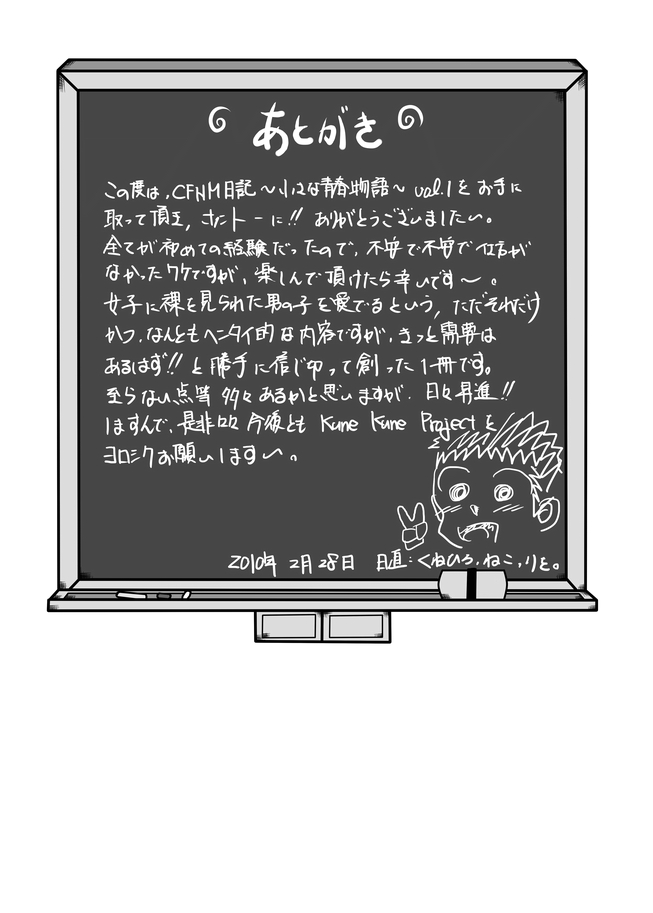 あとがき
この度は、CFNM日記～小さな青春物語～ vol.1を お手に
取って頂き, まことーに!! ありがとうございました〜。
全てが初めての経験だったので、不安で不安で仕方が
なかったワケですが、楽しんで頂けたら幸いです〜。
女子に裸を見られた男の子を愛でるという, ただそれだけ
かつ、なんともヘンタイ的な内容ですが、きっと需要は
あるはず!! と勝手に信じ切って創った1冊です。
至らない点等 多々あるかと思いますが、日々昇進!!
しますんで、是非々々 今後とも Kune Kune Project を
ヨロシクお願いします〜。
2010年 2月 28日 日直:くねひろ,ねこ,りと。